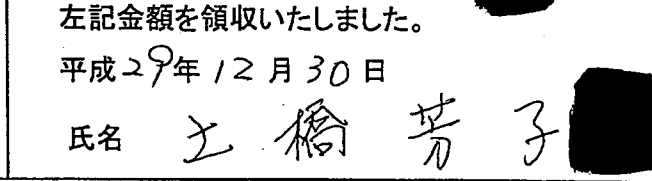 左記金額を領収いたしました。
平成29年12月30日
氏名 土橋芳子